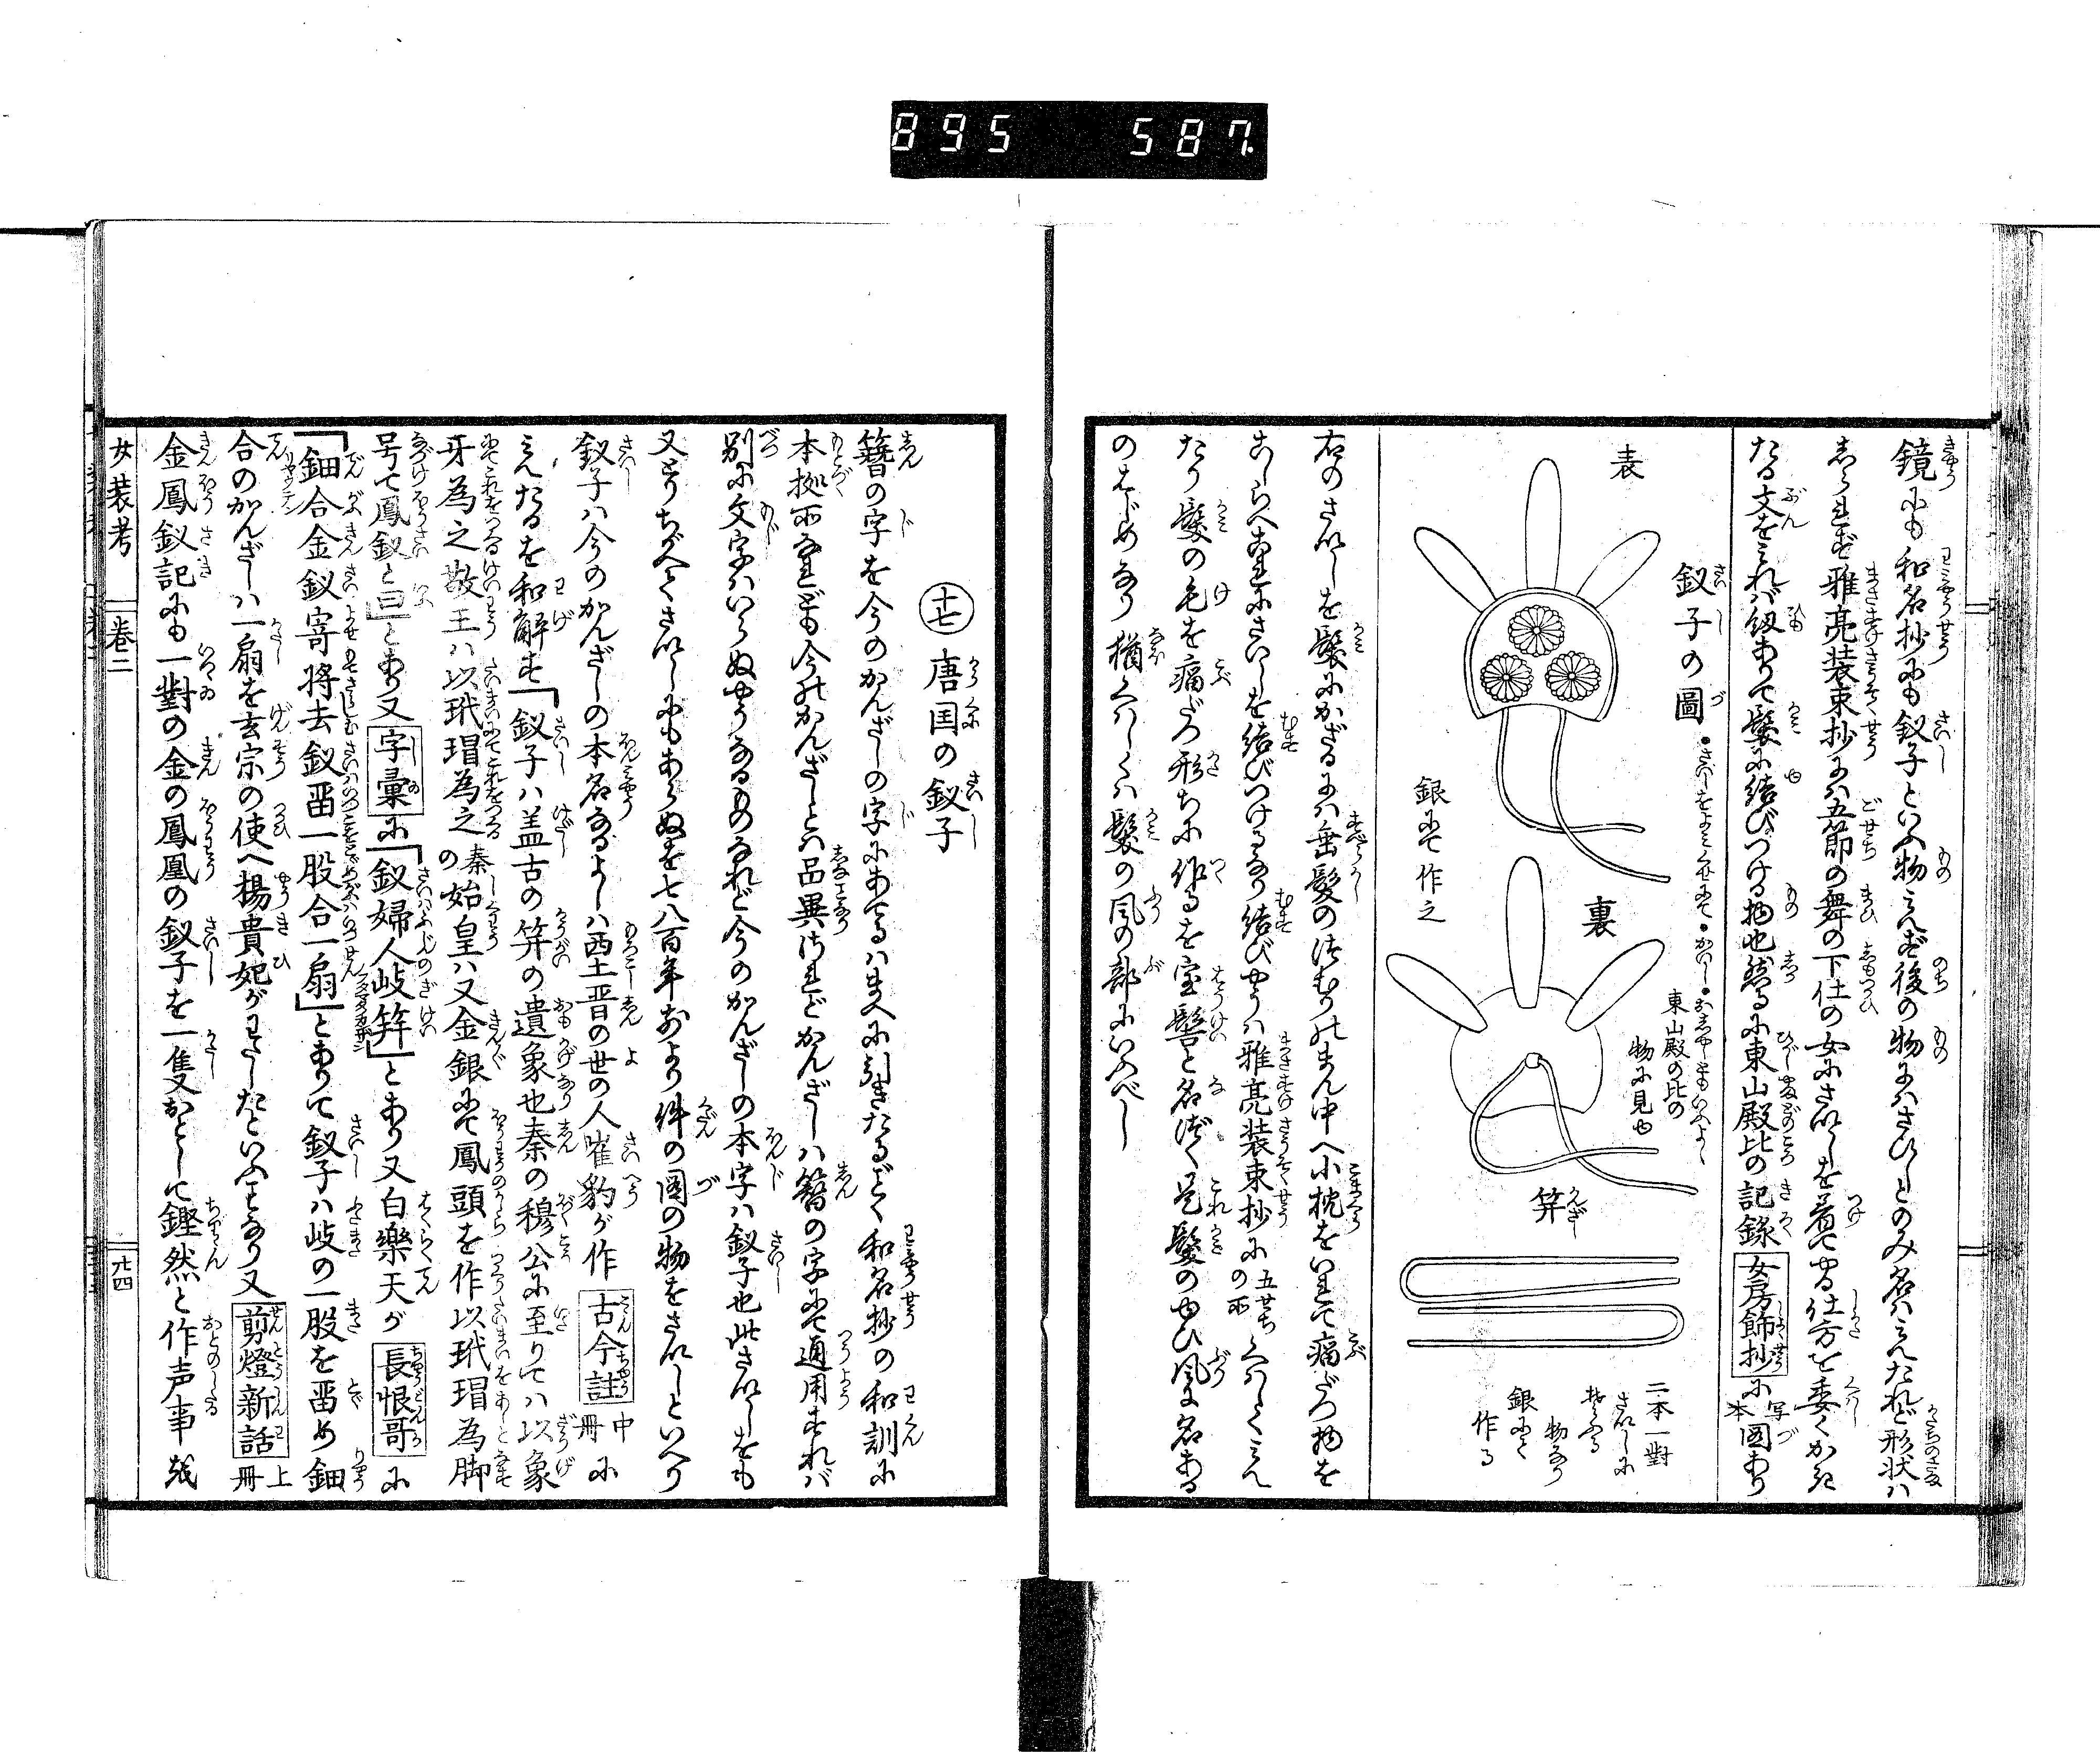 895 587.
鏡にも和名抄にも釵子といふ物みえず後の物にはさひしとのみ名はみえたれど形状は
しられず雅亮装束抄には五節の舞の下仕の女にさいしを着てやる仕方を委くかき
たる文をみれば紐ありて髪に結びつける物也然るに東山殿比の記録女房飾抄に写本図あり
釵子の圖
表
裏
東山殿の比の
物に見ゆ
銀にて作之
笄
二本一對
さいしに
そふる
物なり
銀にて
作る
右のさいしを髪にかざるには垂髪のつむりのまん中へ小枕をいれて瘤だつ物を
こしらへこれにさいしを結びつけるなり結びやうは雅亮装束抄に五せちの所くはしくみえ
たり髪の毛を瘤だつ形ちに作るを宝髻と名づく是髪のゆひ風に名ある
のはじめなり猶くはしくは髪の風の部にいふべし
十七 唐国の釵子
簪の字を今のかんざしの字にあてるはまへに引きたるごとく和名抄の和訓に
本拠所なれども今のかんざしとは品異つれどかんざしは簪の字にて通用すれば
別に文字はいらぬやうなるものなれど今のかんざしの本字は釵子也此さいしをも
又とりちがへてさいしにもあらぬを七八百年前より件の図の物をさいしといへり
釵子ハ今のかんざしの本名なるよしハ西土晋の世の人崔豹が作古今註中冊に
みえたるを和解す「釵子ハ盖古の笄の遺象也秦の穆公に至りてハ以象
牙為之敬王ハ以玳瑁為之秦の始皇ハ又金銀にて鳳頭を作以玳瑁為脚
号て鳳釵と曰」とあり又字彙に「釵婦人岐笄」とあり又白樂天が長恨哥に
「鈿合金釵寄将去釵畱一股合一扇」とありて釵子ハ岐の一股を畱め鈿
合のかんざしハ一扇を玄宗の使へ楊貴妃がわたしたといふ事なり又剪燈新話上冊
金鳳釵記にも一對の金の鳳凰の釵子を一隻おとして鏗然と作声事
女装考
卷二
廿四